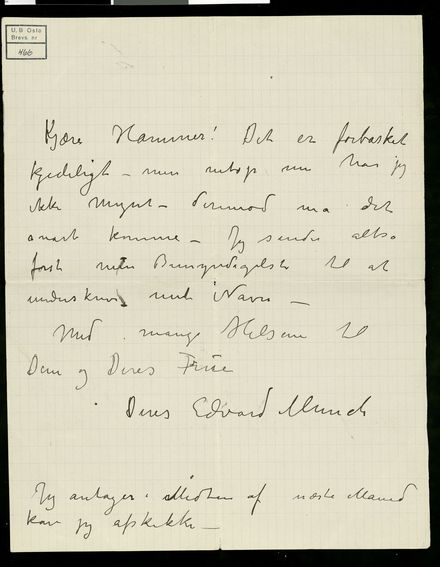 U. B. Oslo
Brevs. nr.
466
Kjære Hammer! Det er forbasket
kjedeligt – men netop nu har jeg
ikke Mynt – derimod må det
snart komme – Jeg sender altså
først min Bemyndigelse til at
underskrive mit Navn –
Med mange Hilsener til
Dem og Deres Frue
Deres Edvard Munch
Jeg antager i Midten af næste Måned
kan jeg afskikke –